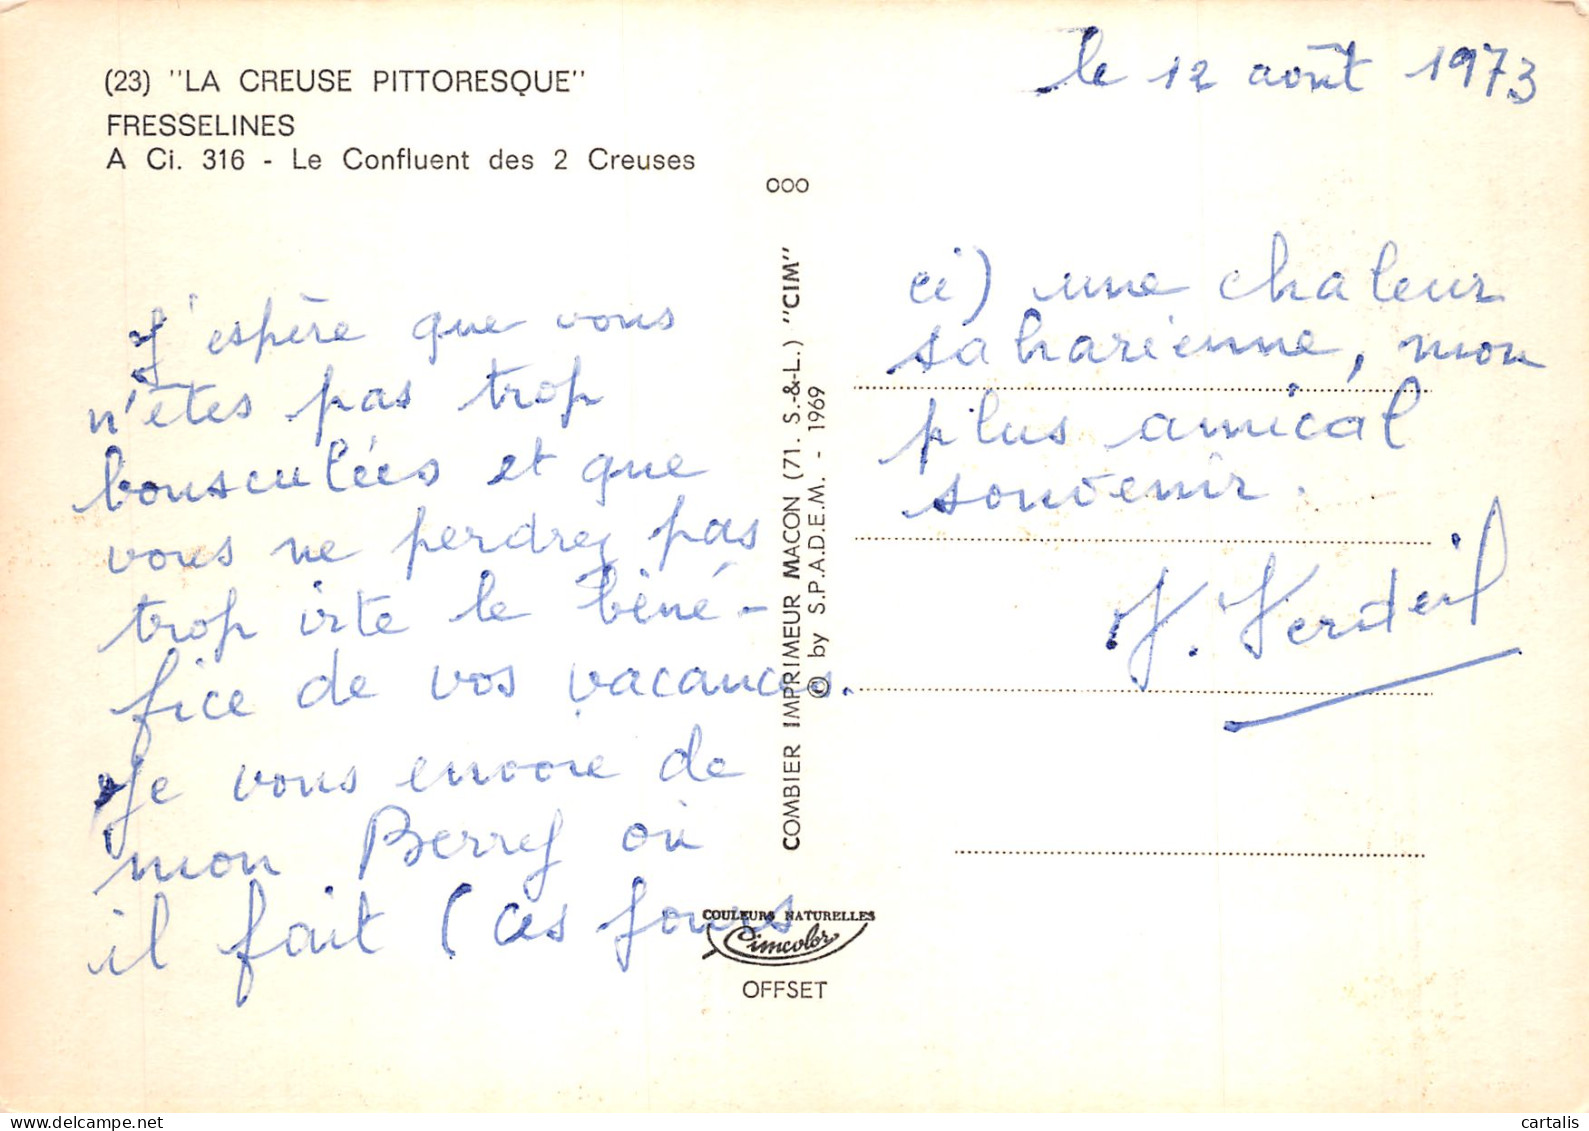 (23) "LA CREUSE PITTORESQUE"
FRESSELINES
A Ci. 316 - Le Confluent des 2 Creuses
le 12 août 1973
J'espère que vous
n'êtes pas trop
bousculées et que
vous ne perdrez pas
trop vite le béné-
fice de vos vacances.
Je vous envoie de
mon Berry où
il fait (ces jours
ci) une chaleur
saharienne, mon
plus amical
souvenir.
Verdeil
000
COMBIER IMPRIMEUR MACON (71. S.-&-L.) "CIM"
© by S.P.A.D.E.M. - 1969
COULEURS NATURELLES
Cimcolor
OFFSET
delcampe.net
cartalis